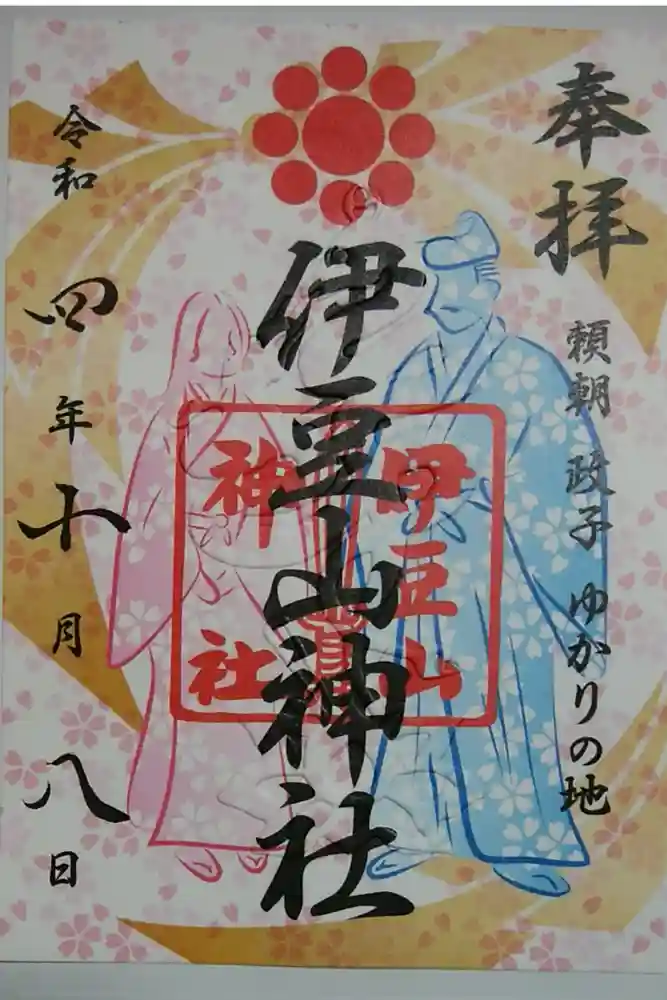 奉拝
頼朝 政子 ゆかりの地
伊豆山神社
伊豆山
神社
令和四年十月八日